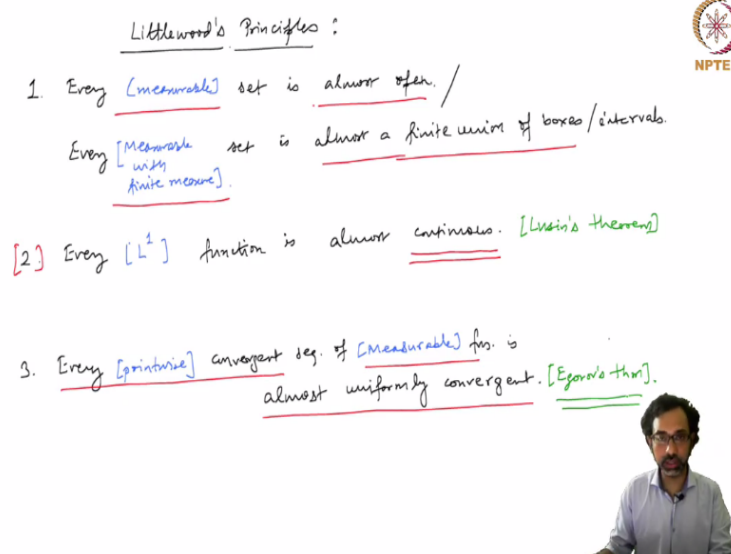 Littlewood's Principles :
NPTEL
1. Every [measurable] set is almost open. /
Every [Measurable with finite measure] set is almost a finite union of boxes / intervals.
[2.] Every [L¹] function is almost continuous. [Lusin's theorem]
3. Every [pointwise] convergent seq. of [Measurable] fns. is
almost uniformly convergent. [Egorov's thm].